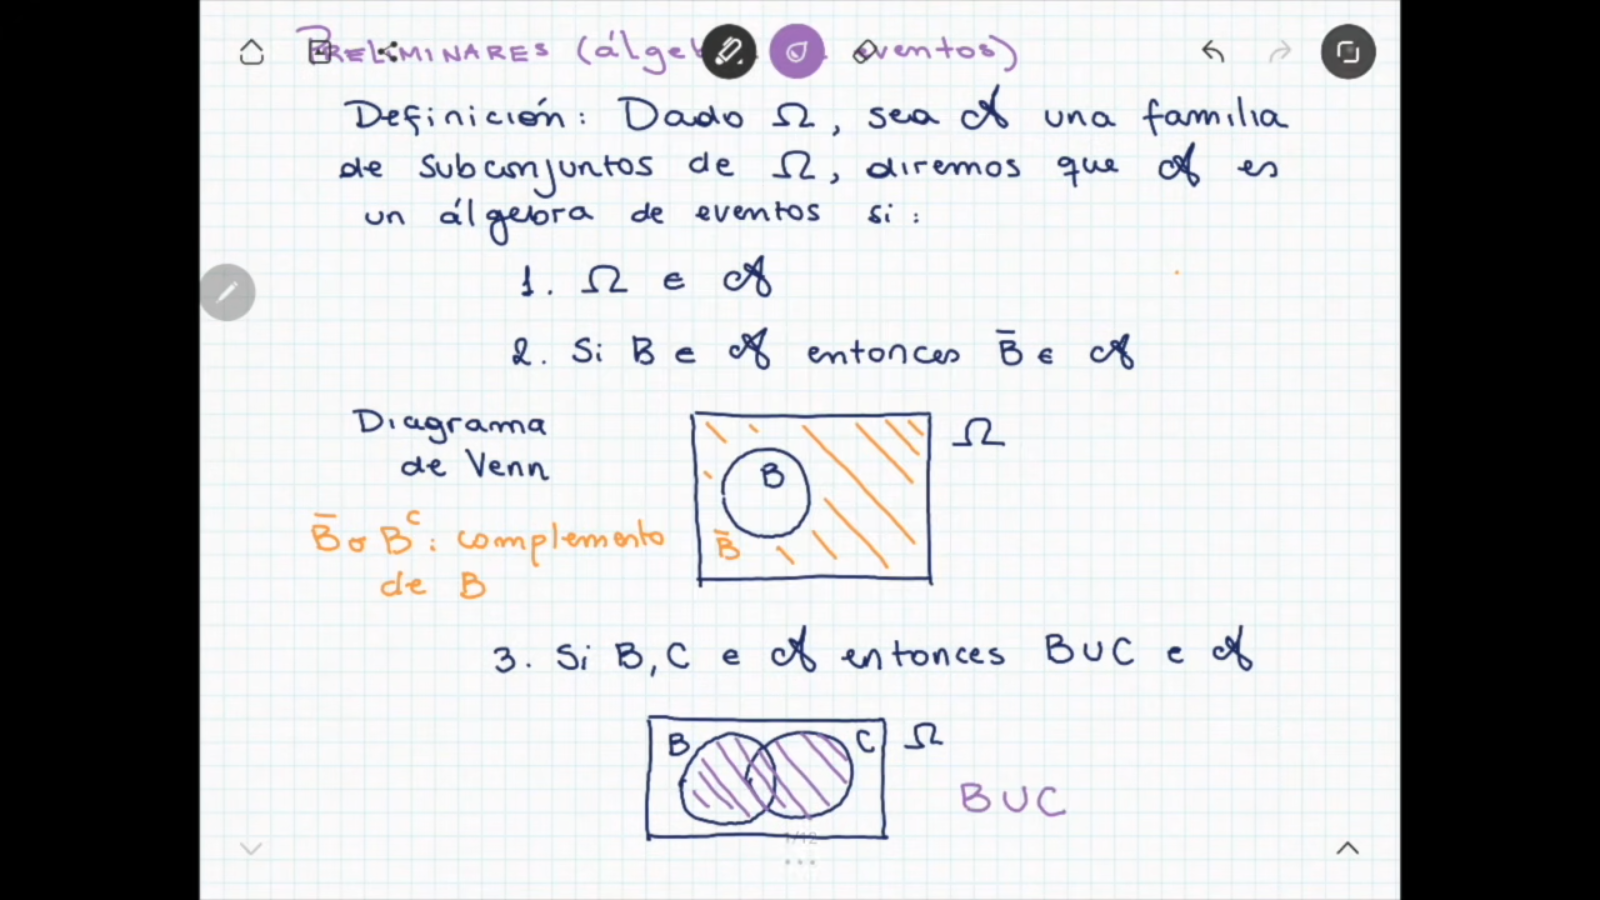 PRELIMINARES (álge eventos)
Definición: Dado Ω, sea 𝒜 una familia
de subconjuntos de Ω, diremos que 𝒜 es
un álgebra de eventos si:
1. Ω ∈ 𝒜
2. Si B ∈ 𝒜 entonces B̄ ∈ 𝒜
Diagrama
de Venn
Ω
B
B̄
B̄ o Bᶜ: complemento
de B
3. Si B, C ∈ 𝒜 entonces B∪C ∈ 𝒜
B
C
Ω
B∪C
1/12